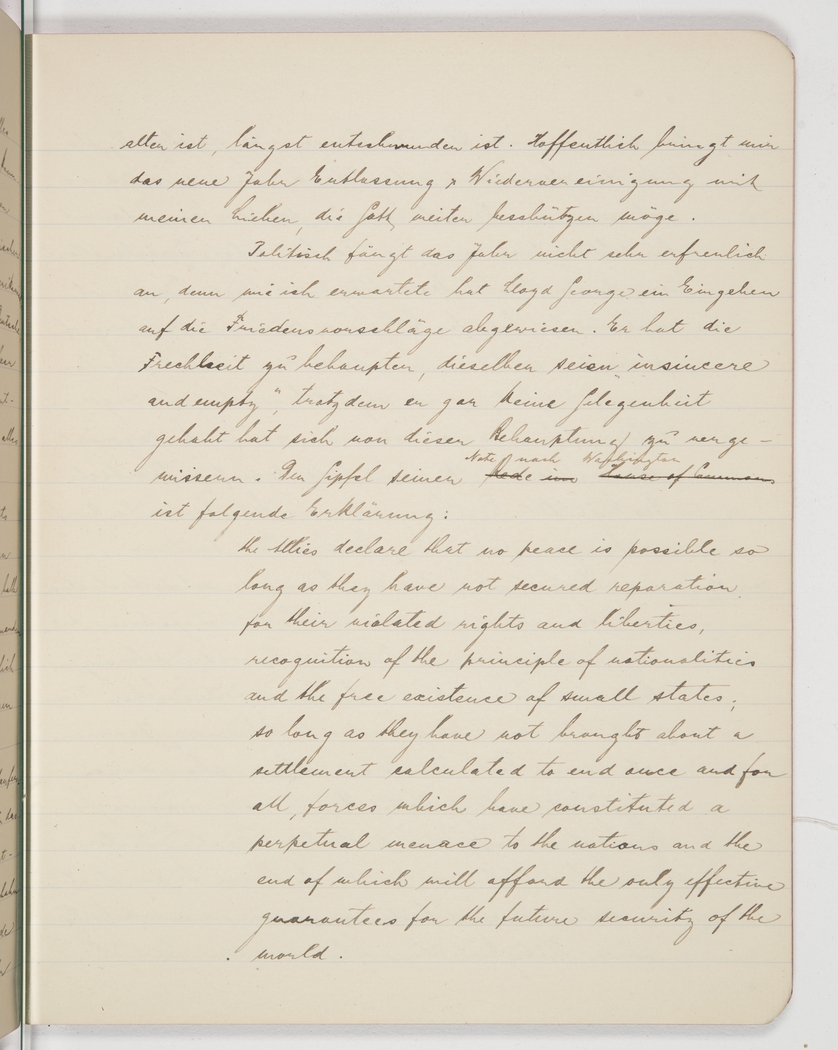 alten ist, längst entschwunden ist. Hoffentlich bringt mir
das neue Jahr Entlassung & Wiedervereinigung mit
meinen Lieben, die Gott weiter beschützen möge.
Politisch fängt das Jahr nicht sehr erfreulich
an, denn wie ich erwartete hat Lloyd George ein Eingehen
auf die Friedensvorschläge abgewiesen. Er hat die
Frechheit zu behaupten, dieselben seien "insincere
and empty", trotzdem er gar keine Gelegenheit
gehabt hat sich von dieser Behauptung zu verge-
wissern. Der Gipfel seiner Note nach Washington Rede im House of Commons
ist folgende Erklärung:
the Allies declare that no peace is possible so
long as they have not secured reparation
for their violated rights and liberties,
recognition of the principle of nationalities
and the free existence of small states;
so long as they have not brought about a
settlement calculated to end once and for
all, forces which have constituted a
perpetual menace to the nations and the
end of which will afford the only effective
guarantees for the future security of the
world.